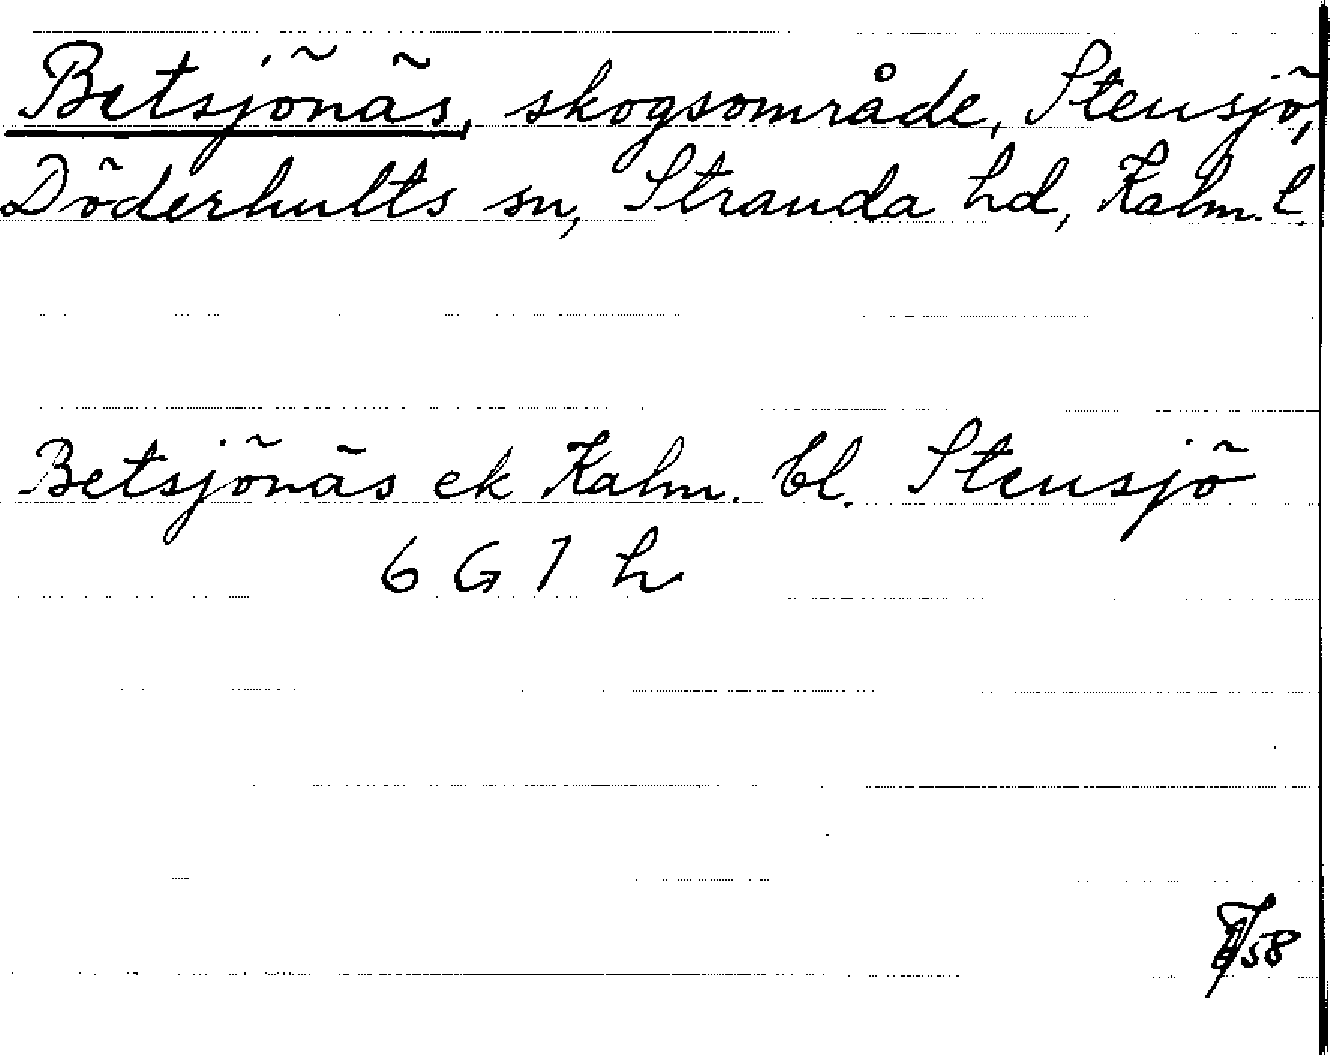 Betsjönäs, skogsområde, Stensjö,
Döderhults sn, Stranda hd, Kalm. l.
Betsjönäs ek Kalm. bl. Stensjö
6 G 7 h
58